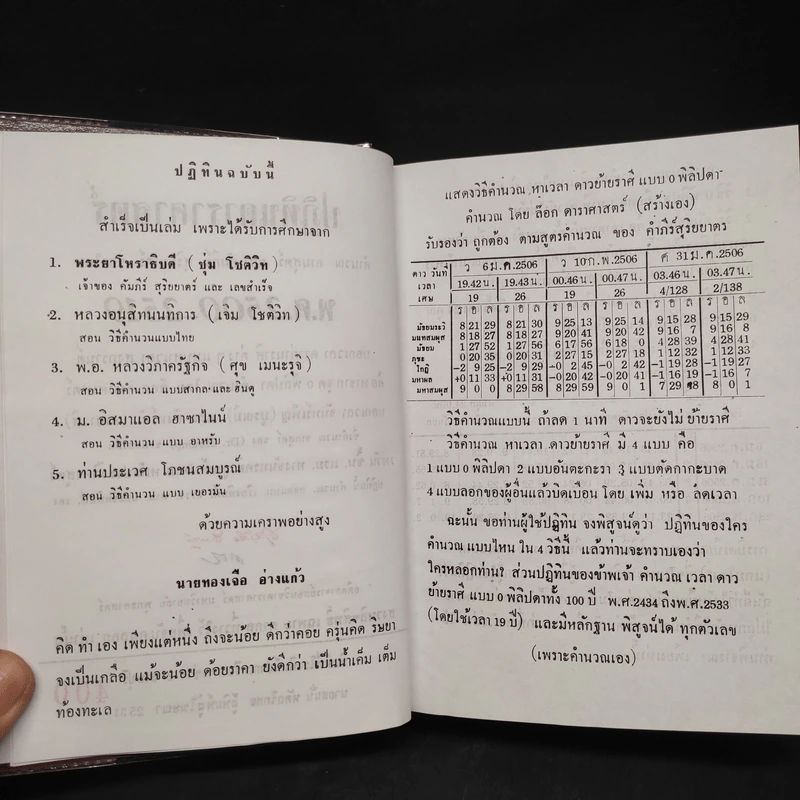 ปฏิทินฉบับนี้
สำเร็จเป็นเล่ม เพราะได้รับการศึกษาจาก
1. พระยาโหราธิบดี ( ชุ่ม โชติวิท )
เจ้าของ คัมภีร์ สุริยยาตร์ และ เลขสำเร็จ
2. หลวงอนุสิทนนทิการ ( เจิม โชติวิท )
สอน วิธีคำนวนแบบไทย
3. พ.อ. หลวงวิภาครัฐกิจ ( ศุข เมนะรุจิ )
สอน วิธีคำนวน แบบสากล และ ฮินดู
4. ม. อิสมาแอล ฮาซาไนน์
สอน วิธีคำนวน แบบ อาหรับ
5. ท่านประเวศ โภชนสมบูรณ์
สอน วิธีคำนวน แบบ เยอรมัน
ด้วยความเคราพอย่างสูง
นายทองเจือ อ่างแก้ว
คิด ทำ เอง เพียงแต่หนึ่ง ถึงจะน้อย ดีกว่าคอย ครุ่นคิด ริษยา
จงเป็นเกลือ แม้จะน้อย ด้อยราคา ยังดีกว่า เป็นน้ำเค็ม เต็ม
ท้องทะเล
แสดงวิธีคำนวณ หาเวลา ดาวย้ายราศี แบบ 0 พิลิปดา
คำนวณ โดย ล๊อก ดาราศาสตร์ (สร้างเอง)
รับรองว่า ถูกต้อง ตามสูตรคำนวณ ของ คำภีร์สุริยยาตร
ดาว วันที่ ว 6 ม.ค.2506 ว 10 ก.พ.2506 ศ 31 ม.ค.2506
เวลา 19.42 น. 19.43 น. 00.46 น. 00.47 น. 03.46 น. 03.47 น.
เศษ 19 26 19 26 4/128 2/138
ร อ ล ร อ ล ร อ ล ร อ ล ร อ ล ร อ ล
มัธยมระวี 8 21 29 8 21 30 9 25 13 9 25 14 9 15 28 9 15 29
มนทสมผุส 8 18 27 8 18 27 9 20 41 9 20 42 9 16 7 9 16 8
มัธยม 1 27 52 1 27 56 6 17 56 6 18 0 4 28 39 4 28 41
ภุชะ 0 20 35 0 20 31 2 27 15 2 27 18 1 12 32 1 12 33
โกฏิ -2 9 25 -2 9 29 -0 2 45 -0 2 42 -1 19 28 -1 19 27
มหาผล +0 11 33 +0 11 31 -0 20 42 -0 20 41 -1 16 19 -1 16 7
มหาสมผุส 9 0 0 8 29 58 8 29 59 9 0 1 7 29 58 8 0 1
วิธีคำนวณแบบนี้ ถ้าลด 1 นาที ดาวจะยังไม่ ย้ายราศี
วิธีคำนวณ หาเวลา ดาวย้ายราศี มี 4 แบบ คือ
1 แบบ 0 พิลิปดา 2 แบบอันตะกะรา 3 แบบตัดกากะบาด
4 แบบลอกของผู้อื่นแล้วบิดเบือน โดย เพิ่ม หรือ ลดเวลา
ฉะนั้น ขอท่านผู้ใช้ปฏิทิน จงพิสูจน์ดูว่า ปฏิทินของใคร
คำนวณ แบบไหน ใน 4 วิธีนี้ แล้วท่านจะทราบเองว่า
ใครหลอกท่าน? ส่วนปฏิทินของข้าพเจ้า คำนวณ เวลา ดาว
ย้ายราศี แบบ 0 พิลิปดาทั้ง 100 ปี พ.ศ.2434 ถึงพ.ศ.2533
(โดยใช้เวลา 19 ปี) และมีหลักฐาน พิสูจน์ได้ ทุกตัวเลข
(เพราะคำนวณเอง)